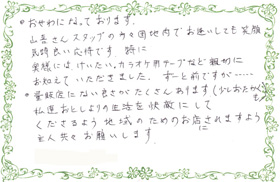 ・おせわになっております。
山善さんスタッフの方々団地内でお逢いしても笑顔
気持良い応待です。特に
実際には、けいたい、カラオケ用テープなど親切に
お知えていただきました。ずーと前ですが……
・量販店にない良さがたくさんあります(少しおたかくても)
私達おとしよりの生活を快適にして
くださるよう地域のためのお店にされますよう
主人共々お願いします。